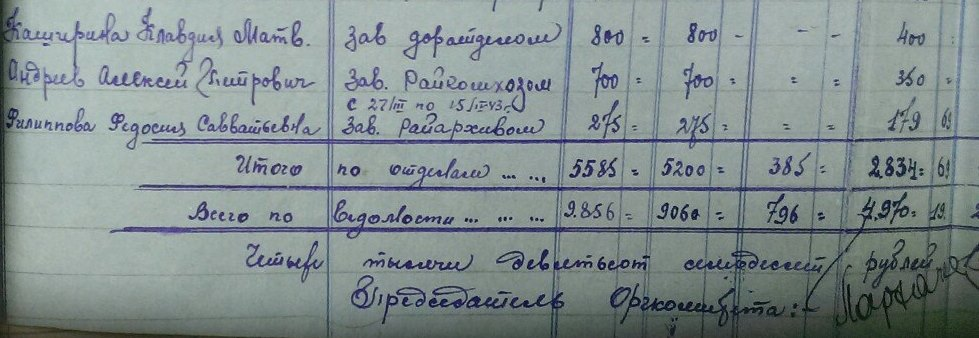 Каширина Клавдия Матв. Зав дорайделом 800 = 800 - - - 400
Андреев Алексей Дмитрович Зав. Райкомхозом 700 = 700 = = = 350 =
с 27/III по 15/IV-43 г.
Филиппова Федосия Савватьевна Зав. Райархивом 275 = 275 = = = 179 69
Итого по отделам ... ... 5585 = 5200 = 385 = 2834 = 69
Всего по ведомости ... ... ... 9.856 = 9060 = 796 = 4.970 = 19
Четыре тысячи девятьсот семьдесят рублей
Председатель Оргкомитета: -